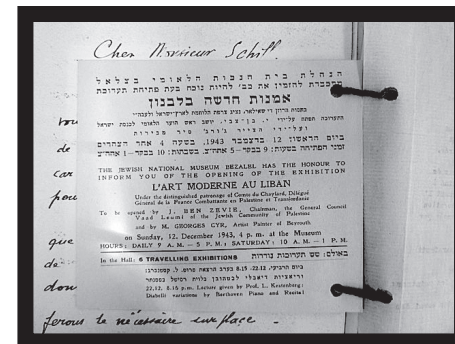 Cher Monsieur Schiff.
הנהלת בית הנכות הלאומי בצלאל
מתכבדת להזמין את כב' להיות נוכח בעת פתיחת תערוכת
אמנות חדשה בלבנון
התערוכה תפתח על־ידי י. בן־צבי, יושב ראש הועד הלאומי לכנסת ישראל
ועל־ידי הצייר ג'ורג' סיר מבירות
ביום הראשון 12 בדצמבר 1943, בשעה 4 אחר הצהרים
זמני הפתיחה בשעות: 9 בבקר–5 אחה"צ, בשבתות: 10 בבקר–1 אחה"צ
THE JEWISH NATIONAL MUSEUM BEZALEL HAS THE HONOUR TO
INFORM YOU OF THE OPENING OF THE EXHIBITION
L'ART MODERNE AU LIBAN
Under the distinguished patronage of Comte du Chaylard, Délégué
Général de la France Combattante en Palestine et Transjordanie
To be opened by J. BEN ZEVIE, Chairman, the General Council
Vaad Leumi of the Jewish Community of Palestine
and by M. GEORGES CYR, Artist Painter of Beyrouth
on Sunday, 12. December 1943, 4 p. m. at the Museum
HOURS: DAILY 9 A. M. – 5 P. M.; SATURDAY: 10 A. M. – 1 P. M.
In the Hall: 6 TRAVELLING EXHIBITIONS באולם: שש תערוכות נודדות
ביום הרביעי, 22.12, 8.15 בערב הרצאת פרופ. ל. קסטנברג:
22.12. 8.15 p.m. Lecture given by Prof. L. Kestenberg:
Diabelli variations by Beethoven Piano and Recital
de
car
pou
que
de
don
ferons le nécessaire sur place.